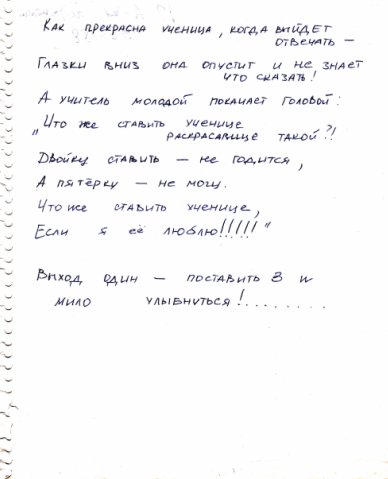 Как прекрасна ученица, когда выйдет
отвечать —
Глазки вниз она опустит и не знает
что сказать!
А учитель молодой покачает головой:
„Что же ставить ученице
раскрасавице такой?!
Двойку ставить — не годится,
А пятёрку — не могу.
Что же ставить ученице,
Если я её люблю!!!!!"
Выход один — поставить 3 и
мило улыбнуться!........